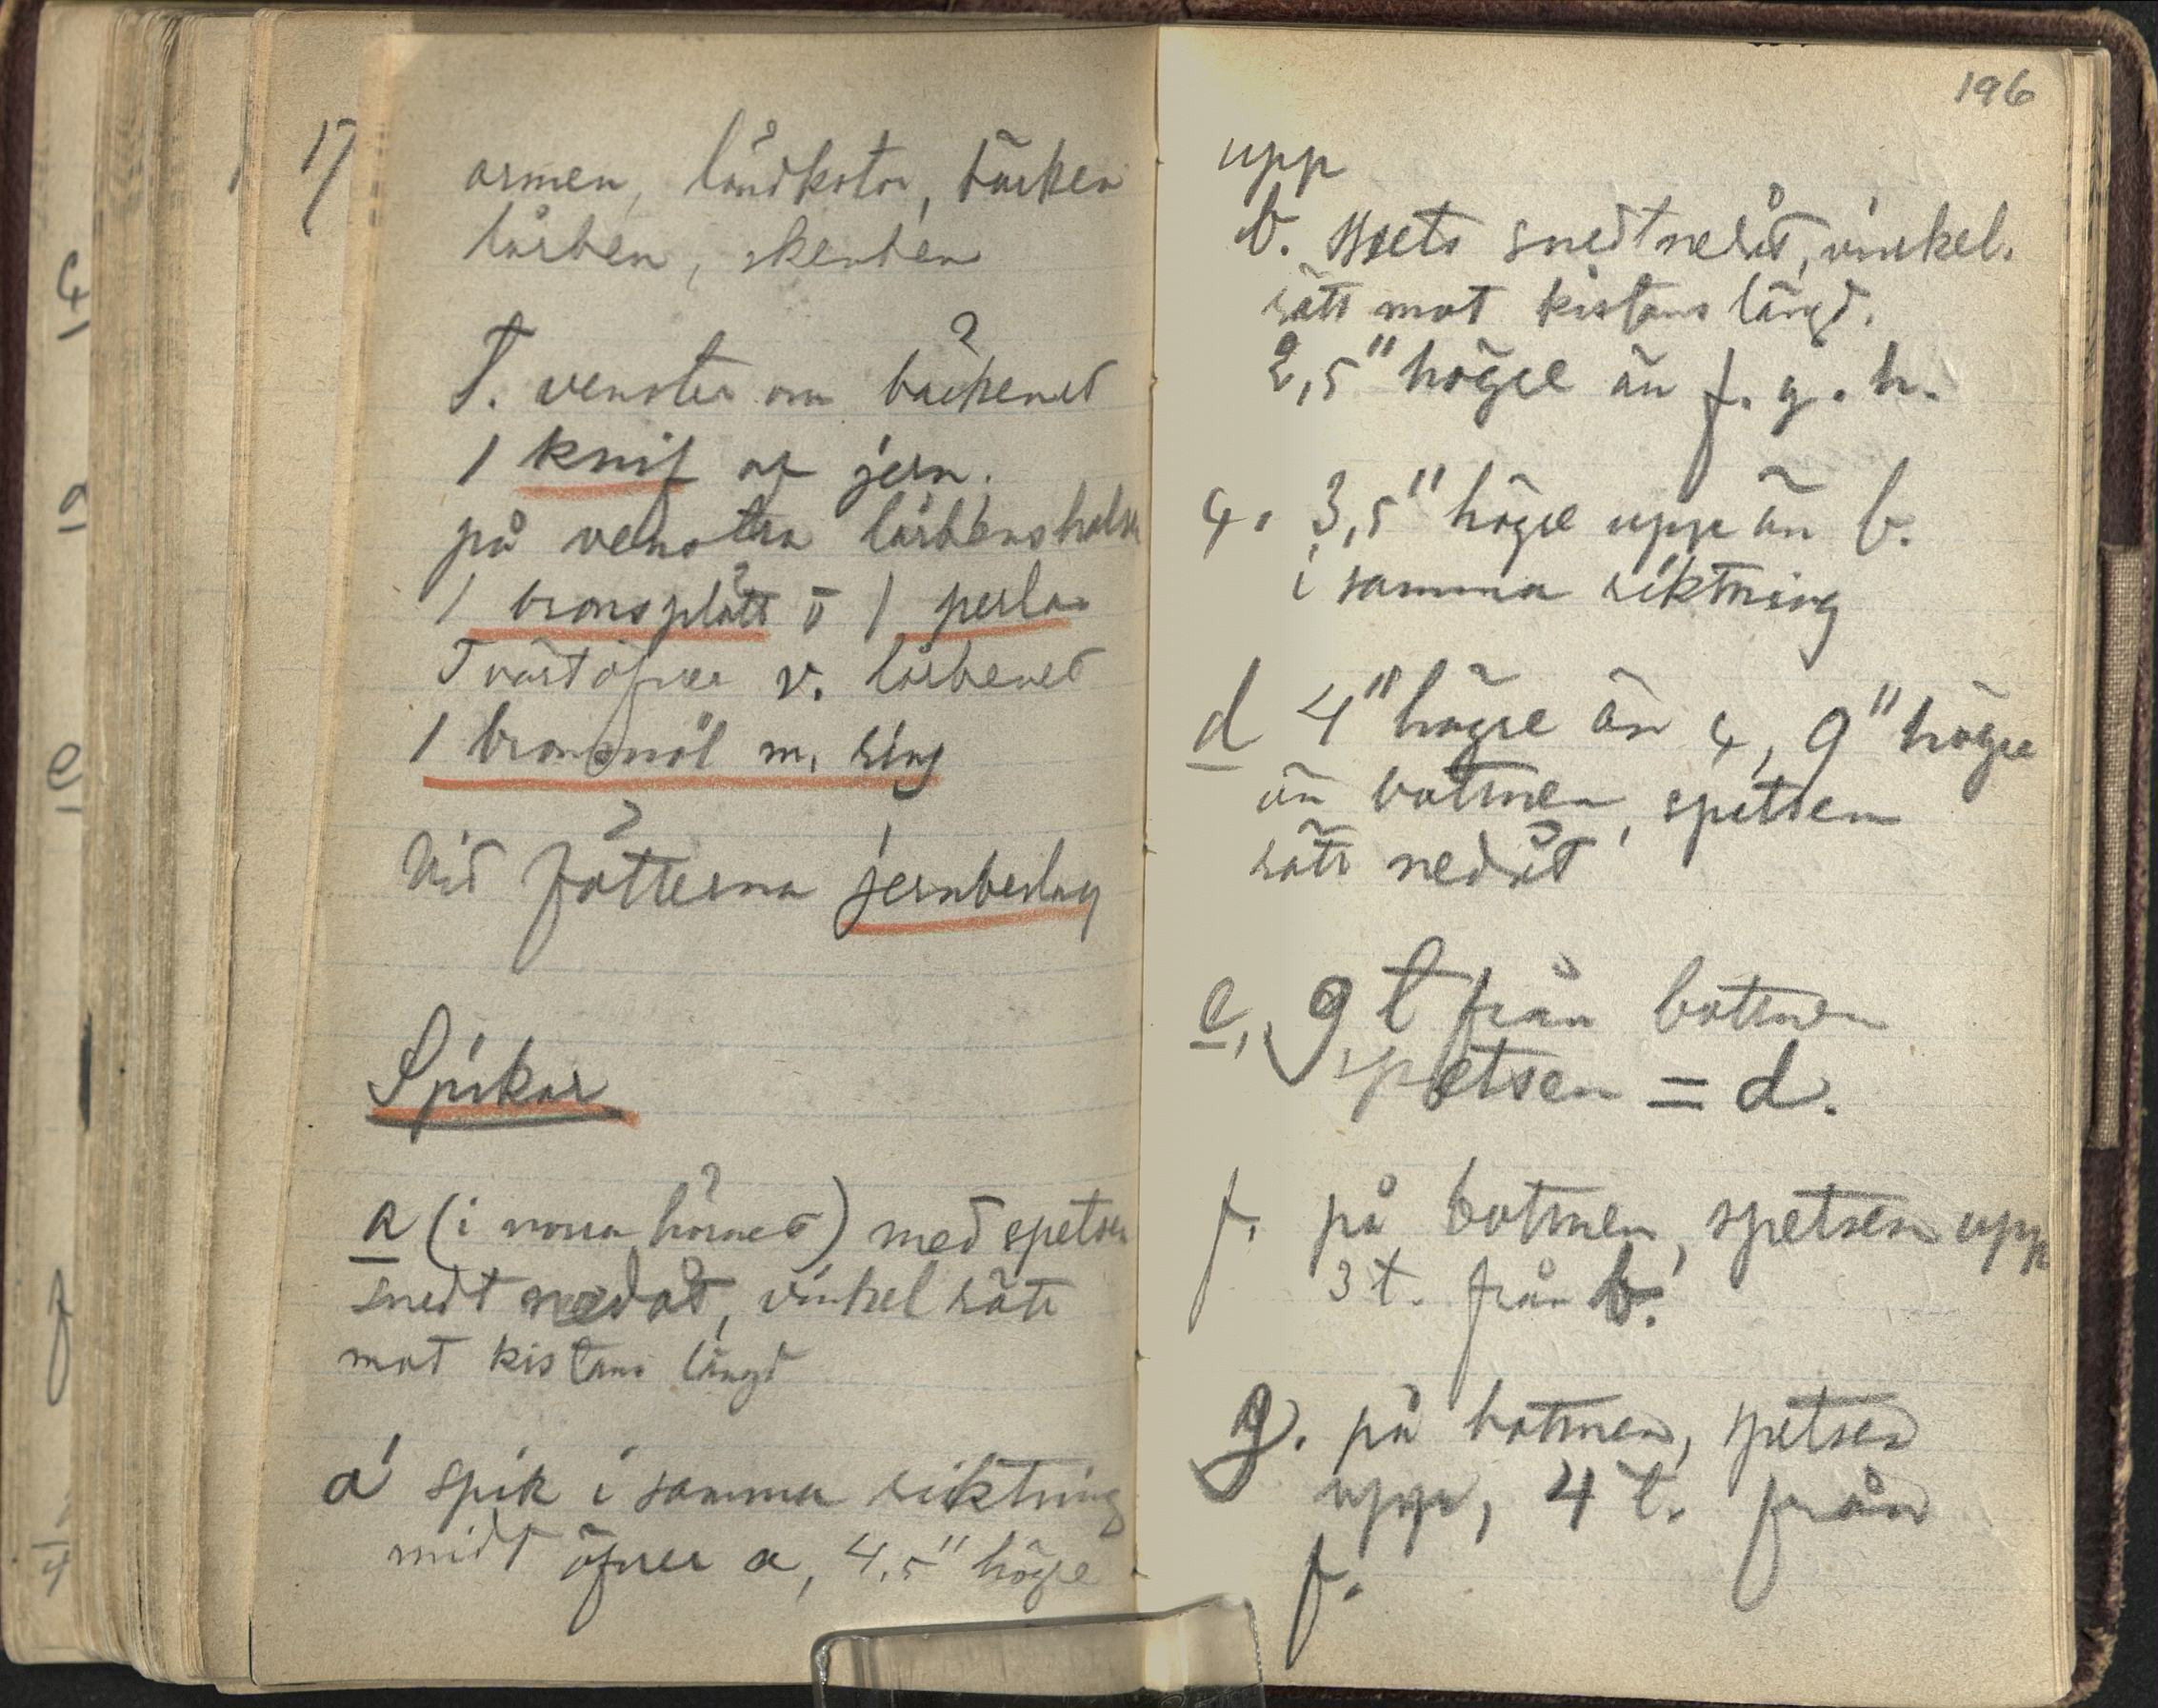 armen, ländkotor, bäcken
lårben, skenben
T. venster om bäckenet
1 knif af jern.
på venstra lårbenshalsen
1 bronsplått o 1 perla
Tvärt öfver v. lårbenet
1 bronsnål m. ring
Vid fötterna jernbeslag
Spikar
a (i norra hörnet) med spetsen
snedt nedåt, vinkelrätt
mot kistans längd
a' spik i samma riktning
midt öfver a, 4,5" högre
196
upp
b. spets snedt nedåt, vinkel-
rätt mot kistans längd.
2,5" högre än f. g. h.
c. 3,5" högre upp än b.
i samma riktning
d 4" högre än c, 9" högre
än botnen, spetsen
rätt nedåt
e, 9 t från botnen
spetsen = d.
f. på botnen, spetsen upp
3 t. från b.
g. på botnen, spetsen
upp, 4 t. från
f.
c
a
e
f